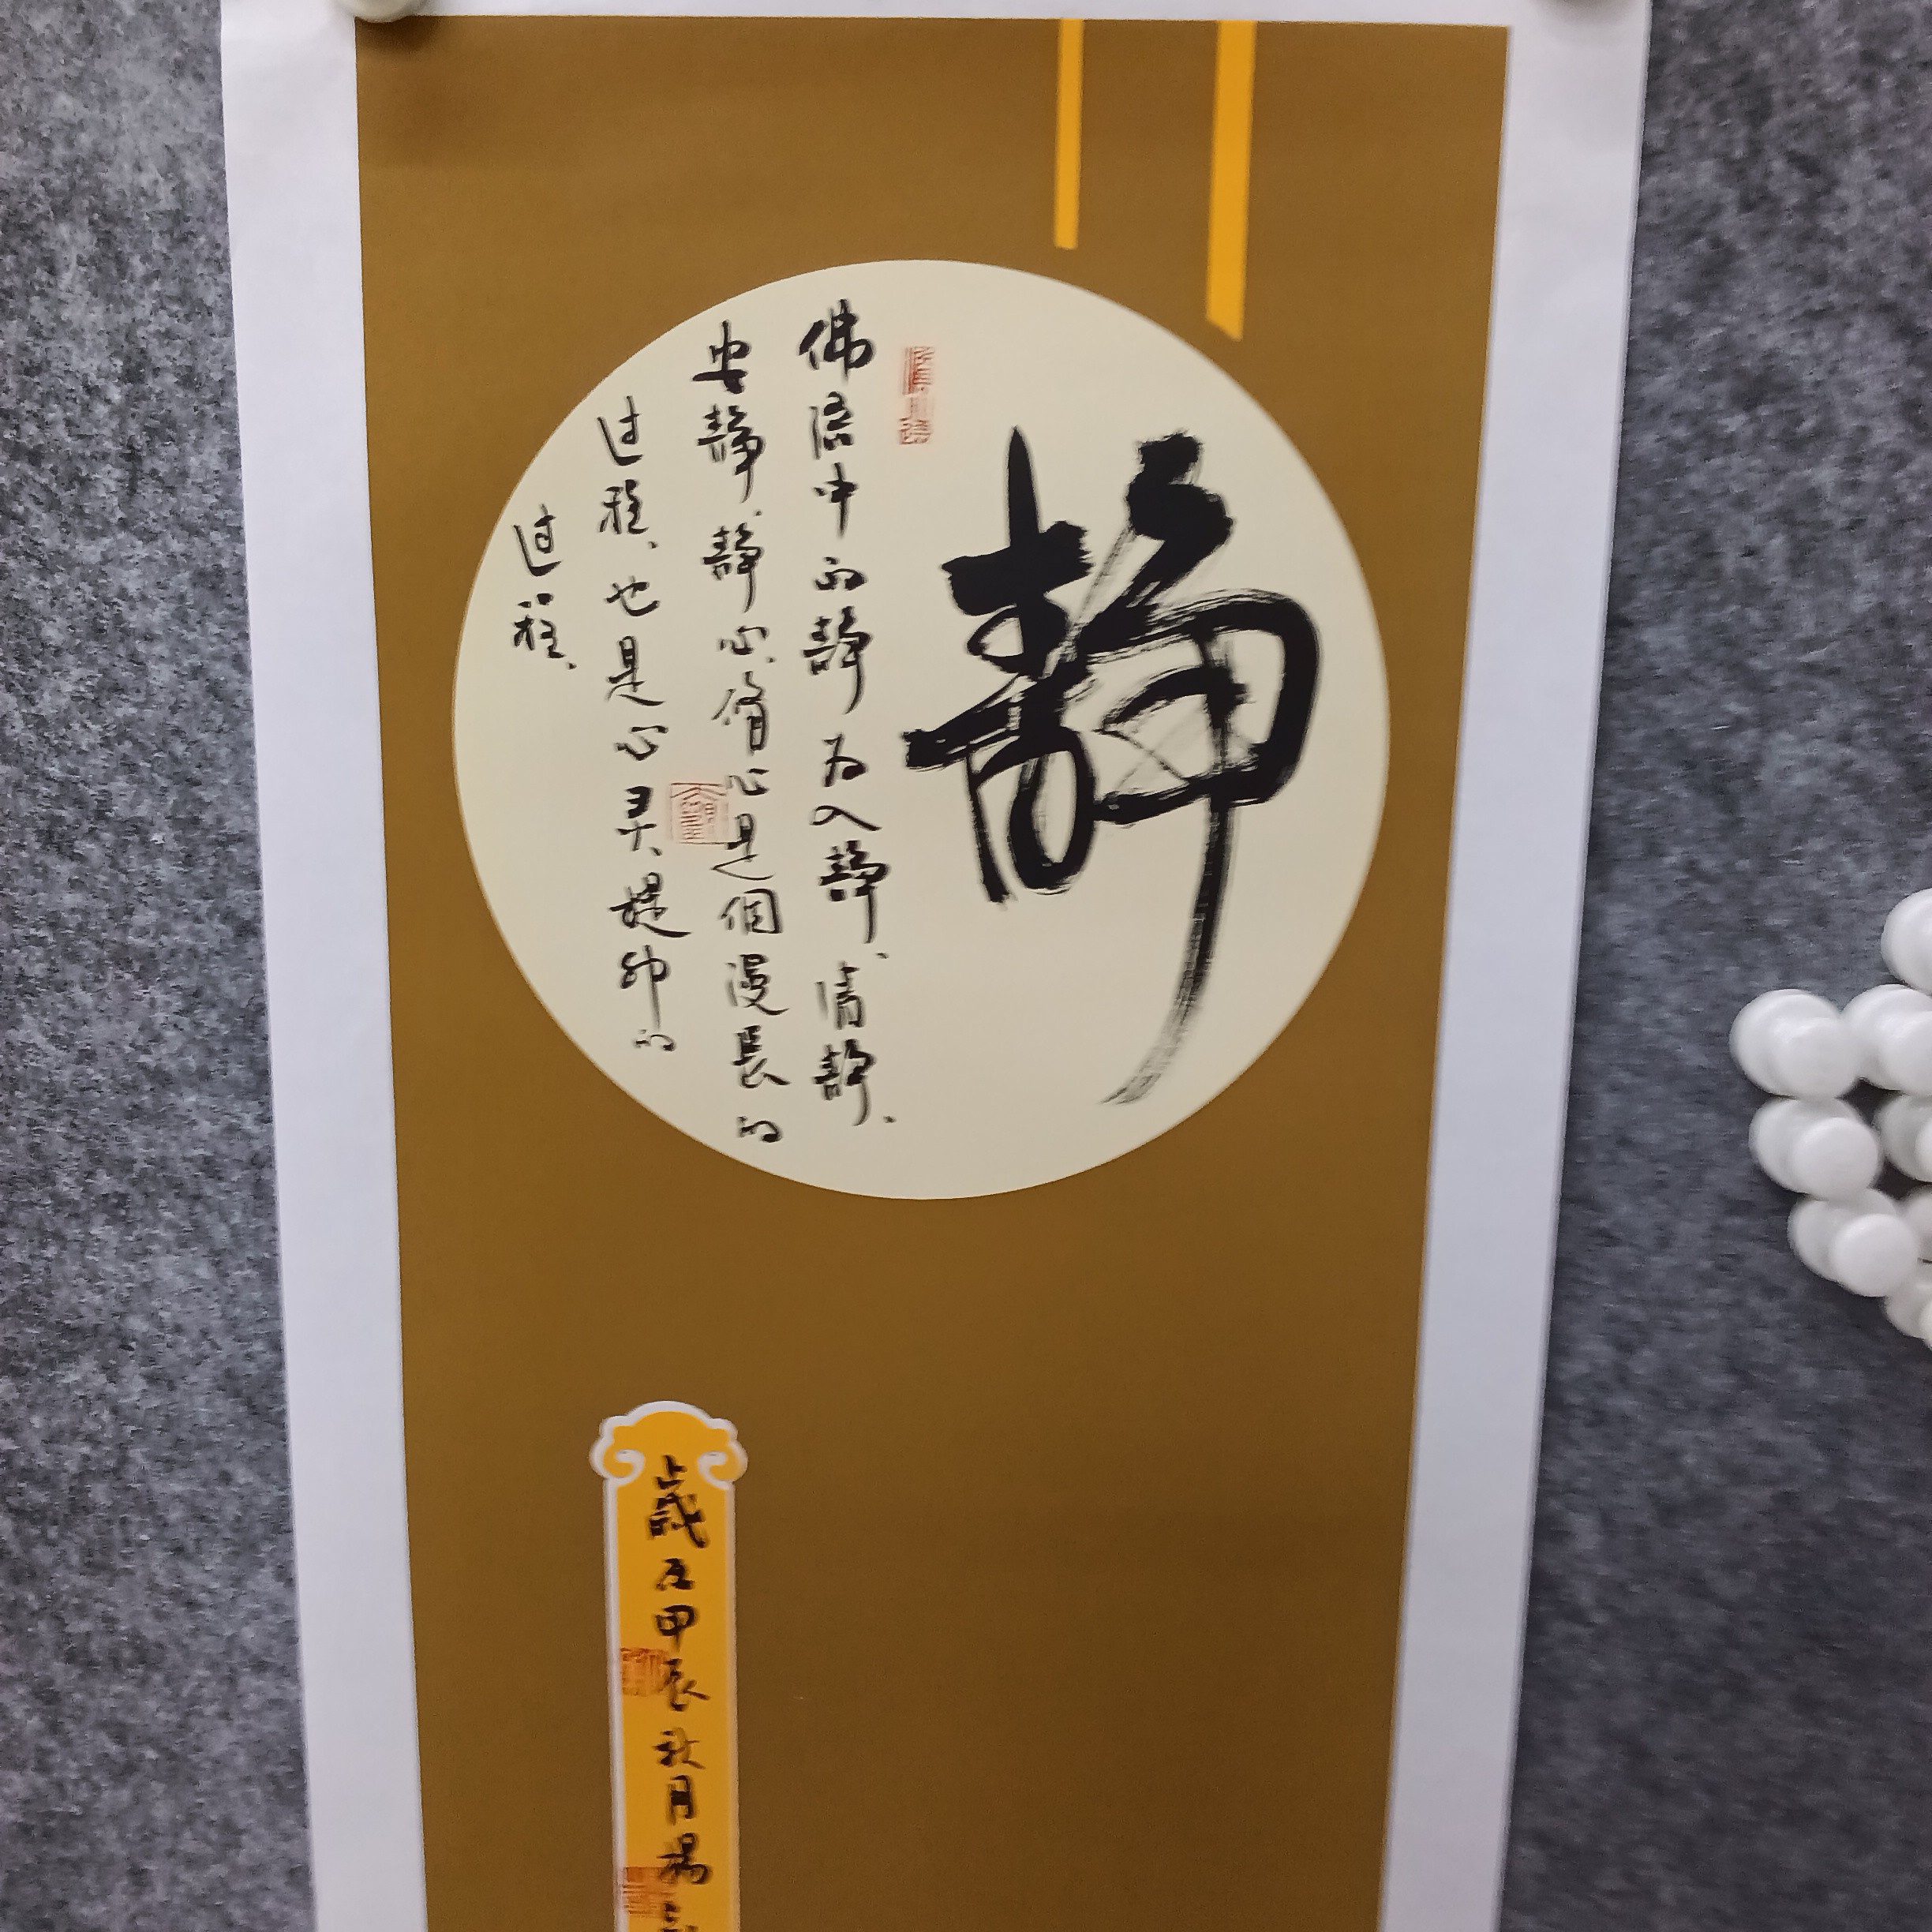 静
佛语中的静为入静、清静、
安静、静心、修心是個漫長的
过程、也是心灵提昇的
过程、
歲在甲辰秋月楊